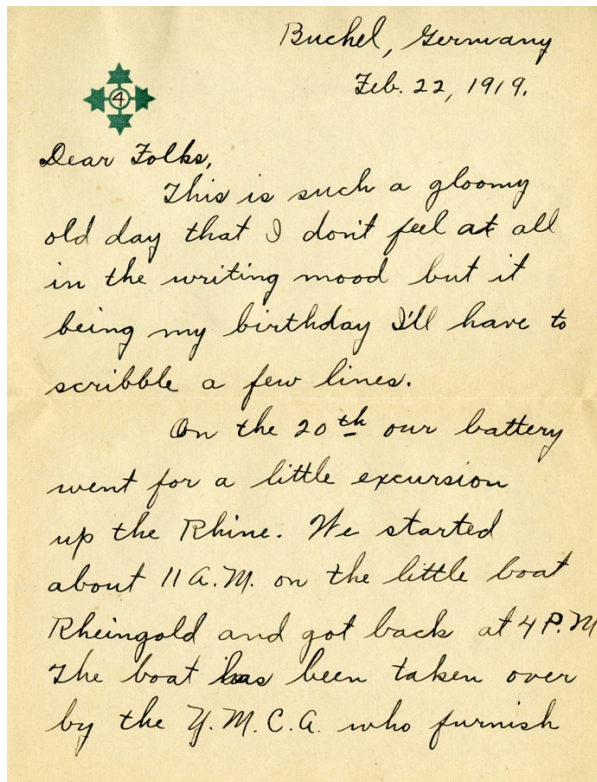 Buchel, Germany
Feb. 22, 1919.
4
Dear Folks,
This is such a gloomy
old day that I don't feel at all
in the writing mood but it
being my birthday I'll have to
scribble a few lines.
On the 20th our battery
went for a little excursion
up the Rhine. We started
about 11 A.M. on the little boat
Rheingold and got back at 4 P.M
The boat has been taken over
by the Y.M.C.A. who furnish